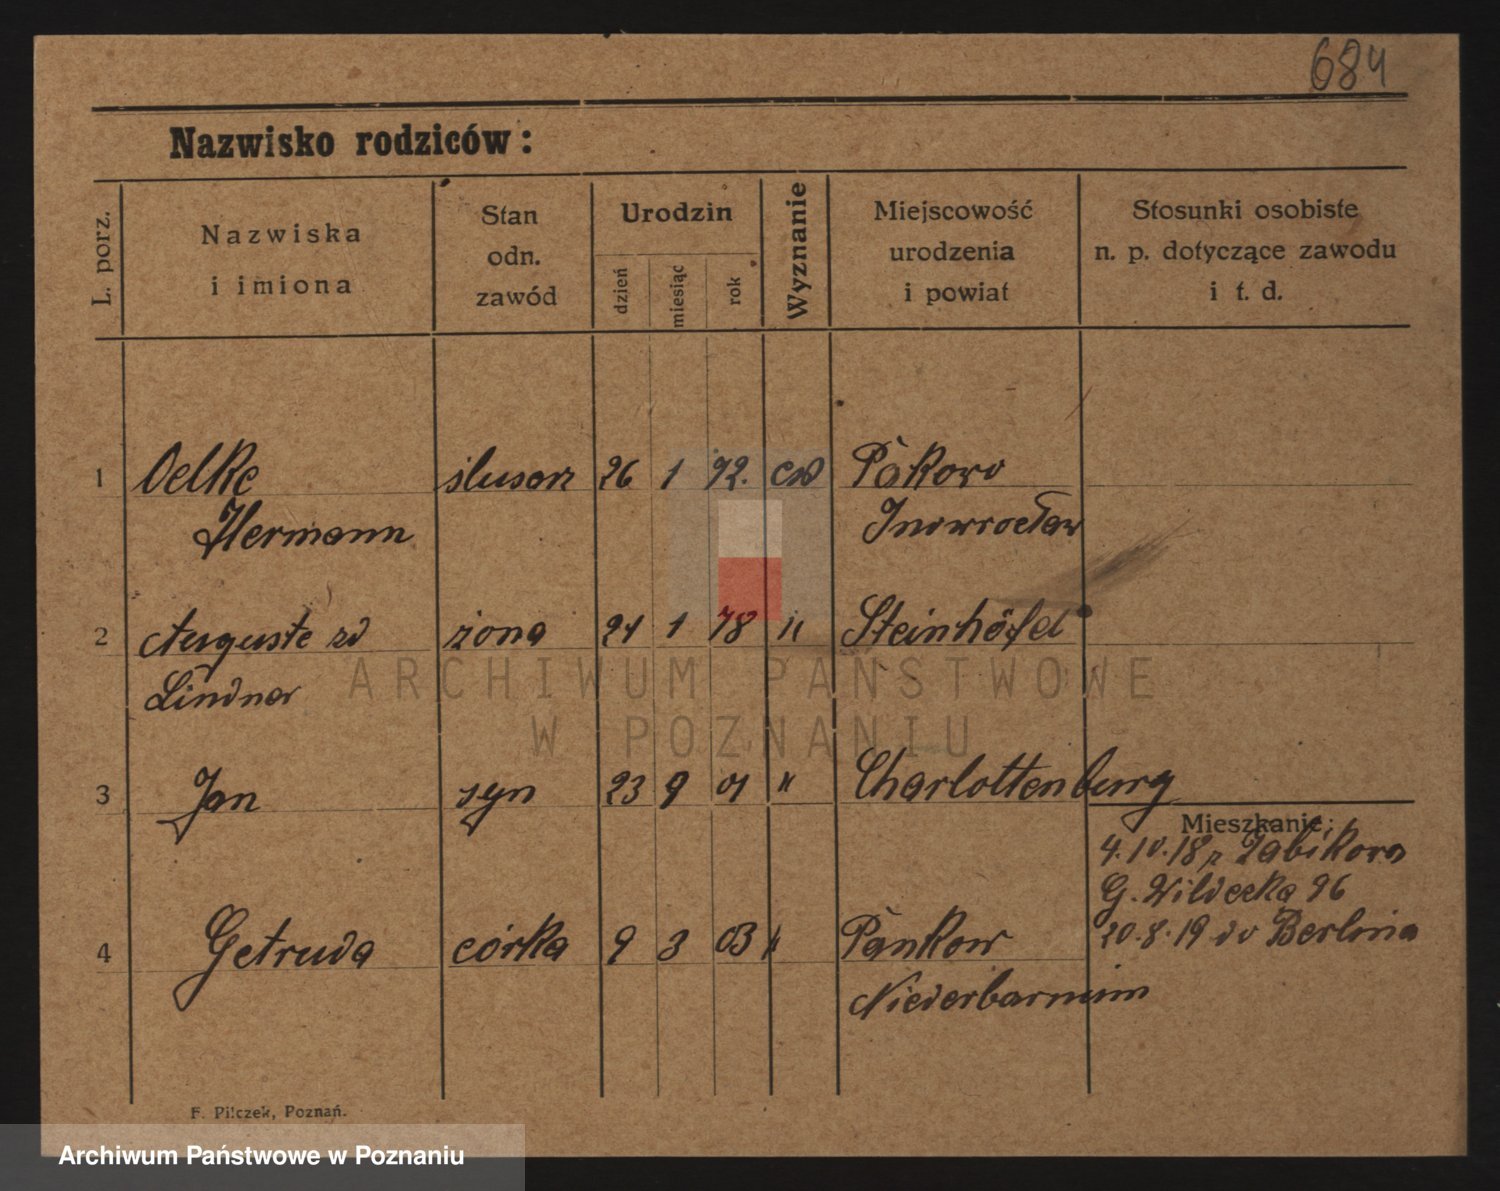 684
Nazwisko rodziców:
L. porz.
Nazwiska
i imiona
Stan
odn.
zawód
Urodzin
dzień
miesiąc
rok
Wyznanie
Miejscowość
urodzenia
i powiat
Stosunki osobiste
n. p. dotyczące zawodu
i t. d.
1 Oelke ślusarz 26 1 72. ew Pakowo
Hermann Inowrocław
2 Auguste zd żona 24 1 78 " Steinhöfel
Lindner
3 Jan syn 23 9 01 " Charlottenburg
Mieszkanie:
4.10.18 z Żabikowa
G. Wildecka 96
4 Getruda córka 9 3 03 " Pankow 20.8.19 do Berlina
Niederbarnim
F. Pilczek, Poznań.
ARCHIWUM PAŃSTWOWE
W POZNANIU
Archiwum Państwowe w Poznaniu